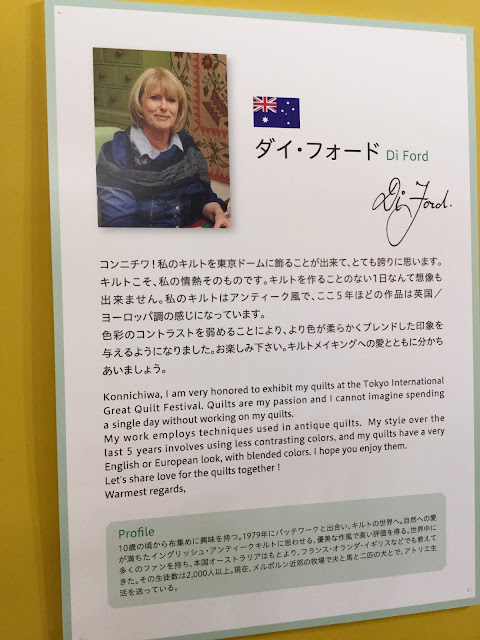 ダイ・フォード Di Ford
Di Ford.
コンニチワ！私のキルトを東京ドームに飾ることが出来て、とても誇りに思います。
キルトこそ、私の情熱そのものです。キルトを作ることのない1日なんて想像も
出来ません。私のキルトはアンティーク風で、ここ5年ほどの作品は英国／
ヨーロッパ調の感じになっています。
色彩のコントラストを弱めることにより、より色が柔らかくブレンドした印象を
与えるようになりました。お楽しみ下さい。キルトメイキングへの愛とともに分かち
あいましょう。
Konnichiwa, I am very honored to exhibit my quilts at the Tokyo International
Great Quilt Festival. Quilts are my passion and I cannot imagine spending
a single day without working on my quilts.
My work employs techniques used in antique quilts. My style over the
last 5 years involves using less contrasting colors, and my quilts have a very
English or European look, with blended colors. I hope you enjoy them.
Let's share love for the quilts together !
Warmest regards,
Profile
10歳の頃から布集めに興味を持つ。1979年にパッチワークと出合い、キルトの世界へ。自然への愛
が満ちたイングリッシュ・アンティークキルトに思わせる、優美な作風で高い評価を得る。世界中に
多くのファンを持ち、本国オーストラリアはもとより、フランス・オランダ・イギリスなどでも教えて
きた。その生徒数は2,000人以上。現在、メルボルン近郊の牧場で夫と馬と二匹の犬とで、アトリエ生
活を送っている。